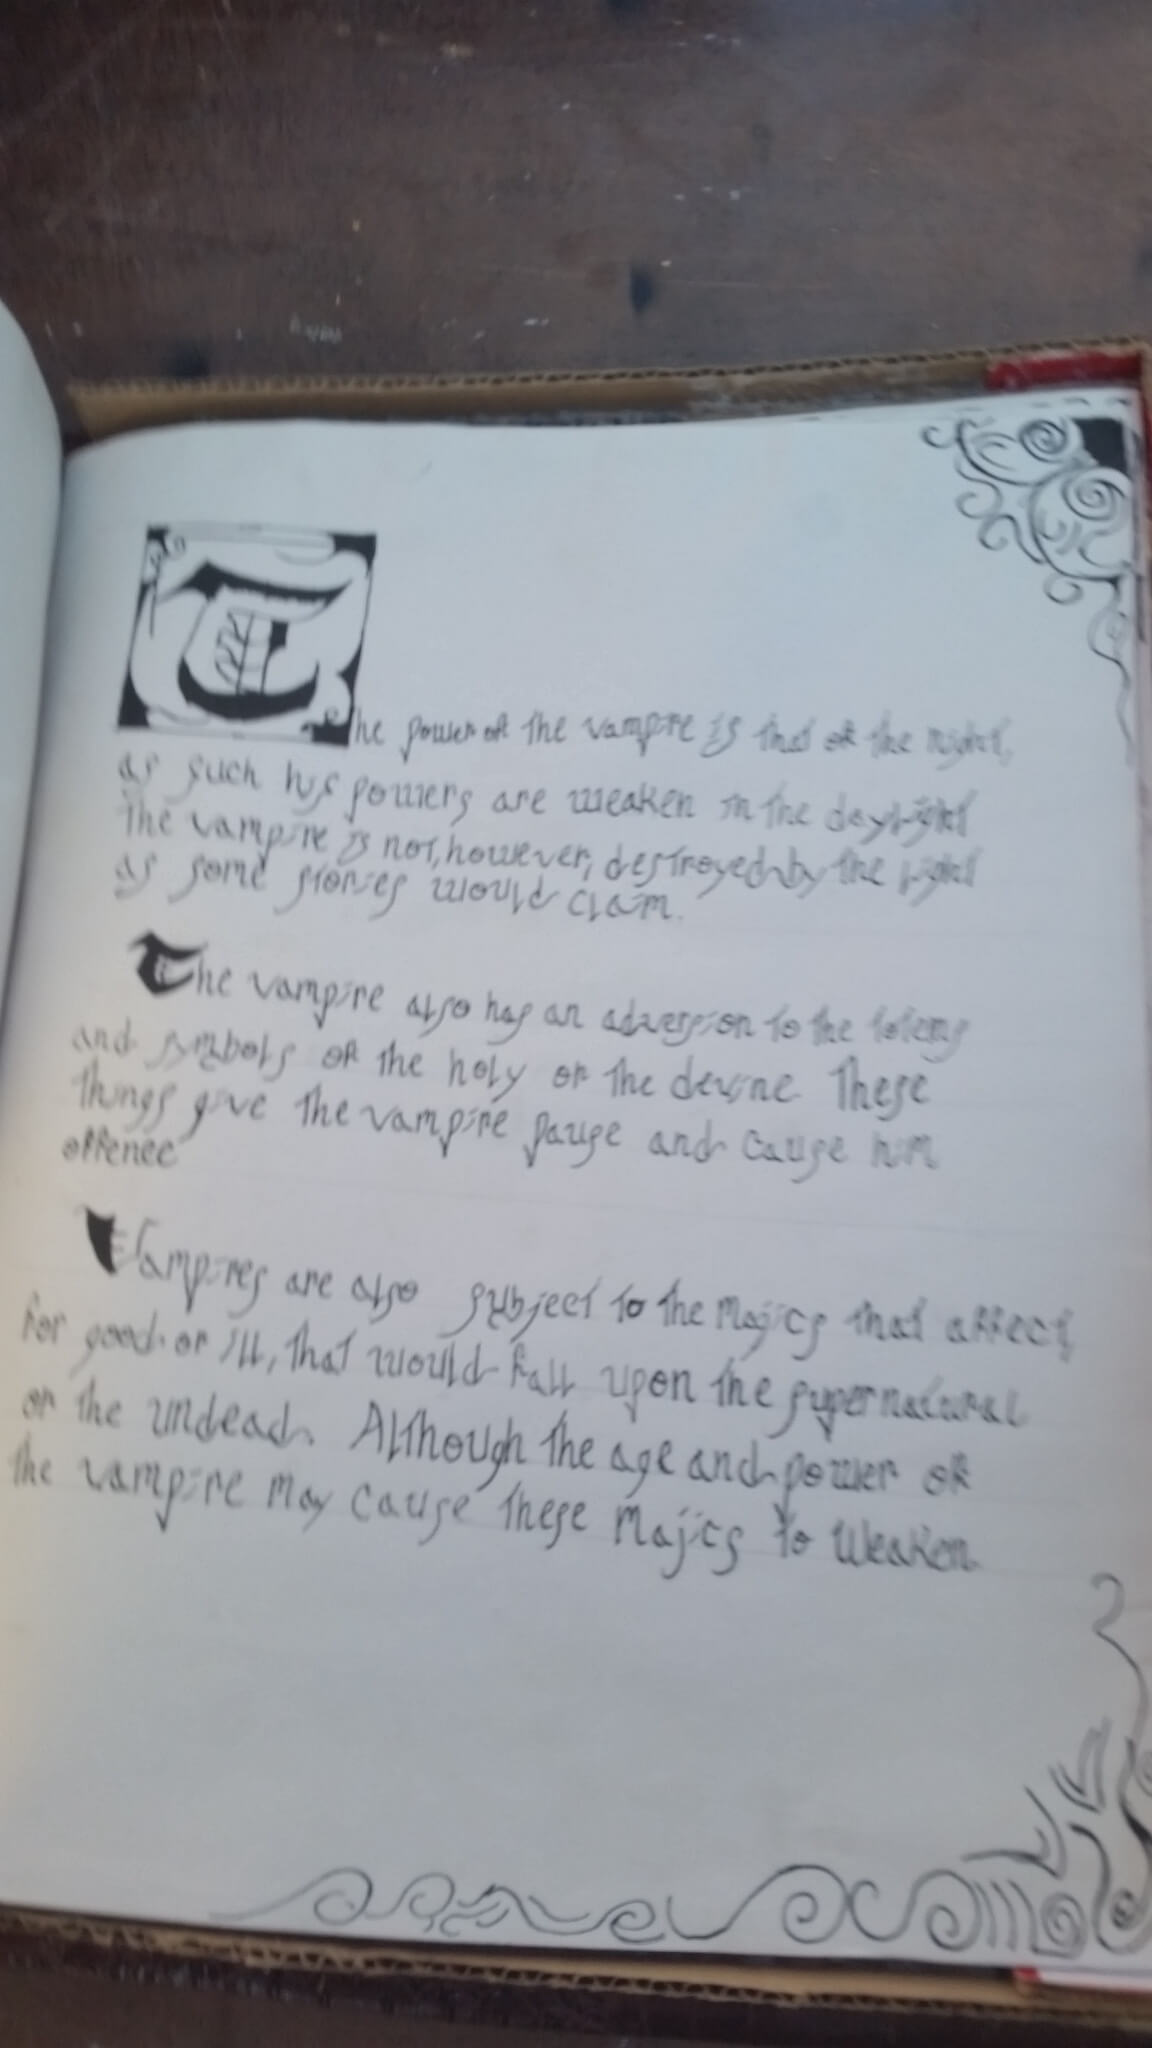 The power of the vampire is that of the night,
as such his powers are weaken in the daylight
The vampire is not, however, destroyed by the light
as some stories would claim.
The vampire also has an adversion to the totems
and symbols of the holy or the devine. These
things give the vampire pause and cause him
offence
Vampires are also subject to the Majics that affect,
for good or ill, that would fall upon the supernatural
or the undead. Although the age and power of
the vampire may cause these Majics to weaken.